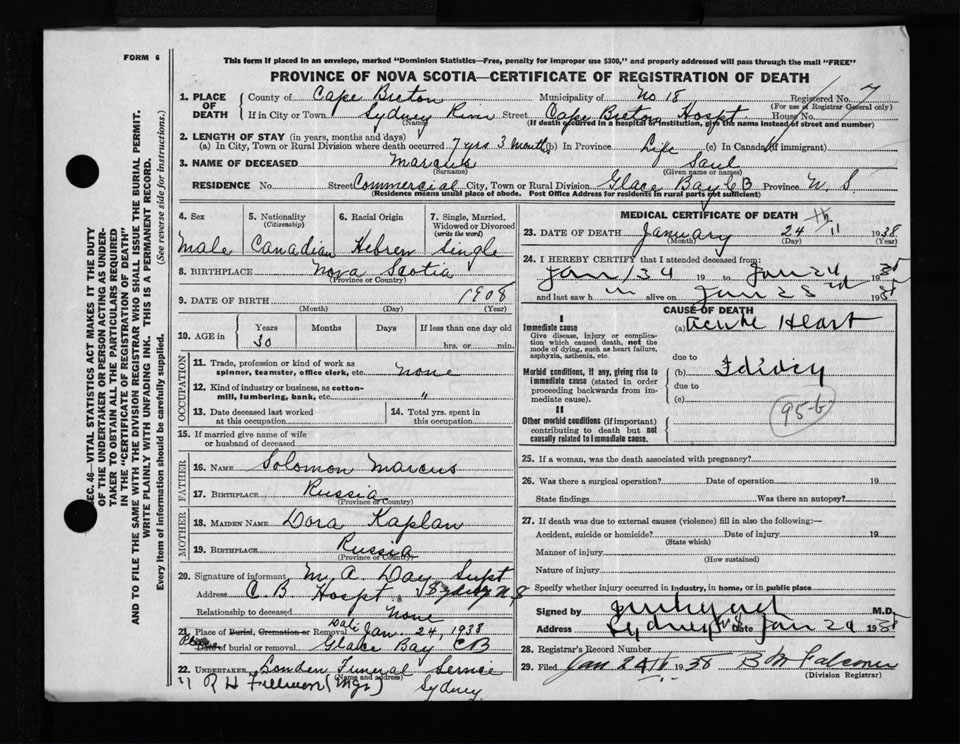 FORM 6
This form if placed in an envelope, marked "Dominion Statistics—Free, penalty for improper use $300," and properly addressed will pass through the mail "FREE"
PROVINCE OF NOVA SCOTIA—CERTIFICATE OF REGISTRATION OF DEATH
SEC. 46—VITAL STATISTICS ACT MAKES IT THE DUTY
OF THE UNDERTAKER OR PERSON ACTING AS UNDER-
TAKER TO OBTAIN ALL THE PARTICULARS REQUIRED
IN THE "CERTIFICATE OF REGISTRATION OF DEATH"
AND TO FILE THE SAME WITH THE DIVISION REGISTRAR WHO SHALL ISSUE THE BURIAL PERMIT.
(See reverse side for instructions)
WRITE PLAINLY WITH UNFADING INK. THIS IS A PERMANENT RECORD.
Every item of information should be carefully supplied.
1. PLACE OF DEATH County of Cape Breton Municipality of No 18 Registered No. 7
(For use of Registrar General only)
If in City or Town Sydney River Street Cape Breton Hospt. House No.
(Name) (If death occurred in a hospital or institution, give the name instead of street and number)
2. LENGTH OF STAY (in years, months and days)
(a) In City, Town or Rural Division where death occurred 7 yrs 3 months (b) In Province Life (c) In Canada (if immigrant)
3. NAME OF DECEASED Marcus Saul
(Surname) (Given name or names)
RESIDENCE No. Street Commercial City, Town or Rural Division Glace Bay CB Province N. S
(Residence means usual place of abode. Post Office Address for residents in rural parts not sufficient)
4. Sex 5. Nationality 6. Racial Origin 7. Single, Married,
(Citizenship) Widowed or Divorced
(write the word)
Male Canadian Hebrew Single
8. BIRTHPLACE Nova Scotia
(Province or Country)
9. DATE OF BIRTH 1908
(Month) (Day) (Year)
10. AGE in Years Months Days If less than one day old
30 hrs. or min.
OCCUPATION
11. Trade, profession or kind of work as
spinner, teamster, office clerk, etc. none
12. Kind of industry or business, as cotton-
mill, lumbering, bank, etc. "
13. Date deceased last worked at this occupation
14. Total yrs. spent in this occupation
15. If married give name of wife
or husband of deceased
FATHER
16. NAME Solomon Marcus
17. BIRTHPLACE Russia
(Province or Country)
MOTHER
18. MAIDEN NAME Dora Kaplan
19. BIRTHPLACE Russia
(Province or Country)
20. Signature of informant M. A. Day Supt
Address C B Hospt. Sydney N S
Relationship to deceased None
21. Place of Burial, Cremation or Removal Date Jan. 24, 1938
Date of burial or removal Glace Bay CB
22. UNDERTAKER Funeral Service
(Name and address)
R H Fillmore (Mgr) Sydney
MEDICAL CERTIFICATE OF DEATH
23. DATE OF DEATH January 24th 1938
(Month) (Day) (Year)
24. I HEREBY CERTIFY that I attended deceased from:
Jan 1 34 19 to Jan 24 1938
and last saw h im alive on Jan 23rd 1938
CAUSE OF DEATH
I
Immediate cause (a) Acute Heart
Give disease, injury or complica-
tion which caused death, not the
mode of dying, such as heart failure,
asphyxia, asthenia, etc.
due to
Morbid conditions, if any, giving rise to (b) Idiocy
immediate cause (stated in order due to
proceeding backwards from im- (c)
mediate cause).
95-b
II
Other morbid conditions (if important)
contributing to death but not
causally related to immediate cause.
25. If a woman, was the death associated with pregnancy?
26. Was there a surgical operation? Date of operation 19
State findings Was there an autopsy?
27. If death was due to external causes (violence) fill in also the following:—
Accident, suicide or homicide? Date of injury 19
(State which)
Manner of injury
(How sustained)
Nature of injury
Specify whether injury occurred in Industry, in home, or in public place
Signed by M.D.
Address Sydney N S Date Jan 24 1938
28. Registrar's Record Number
29. Filed Jan 24th 1938 B M Falconer
(Division Registrar)